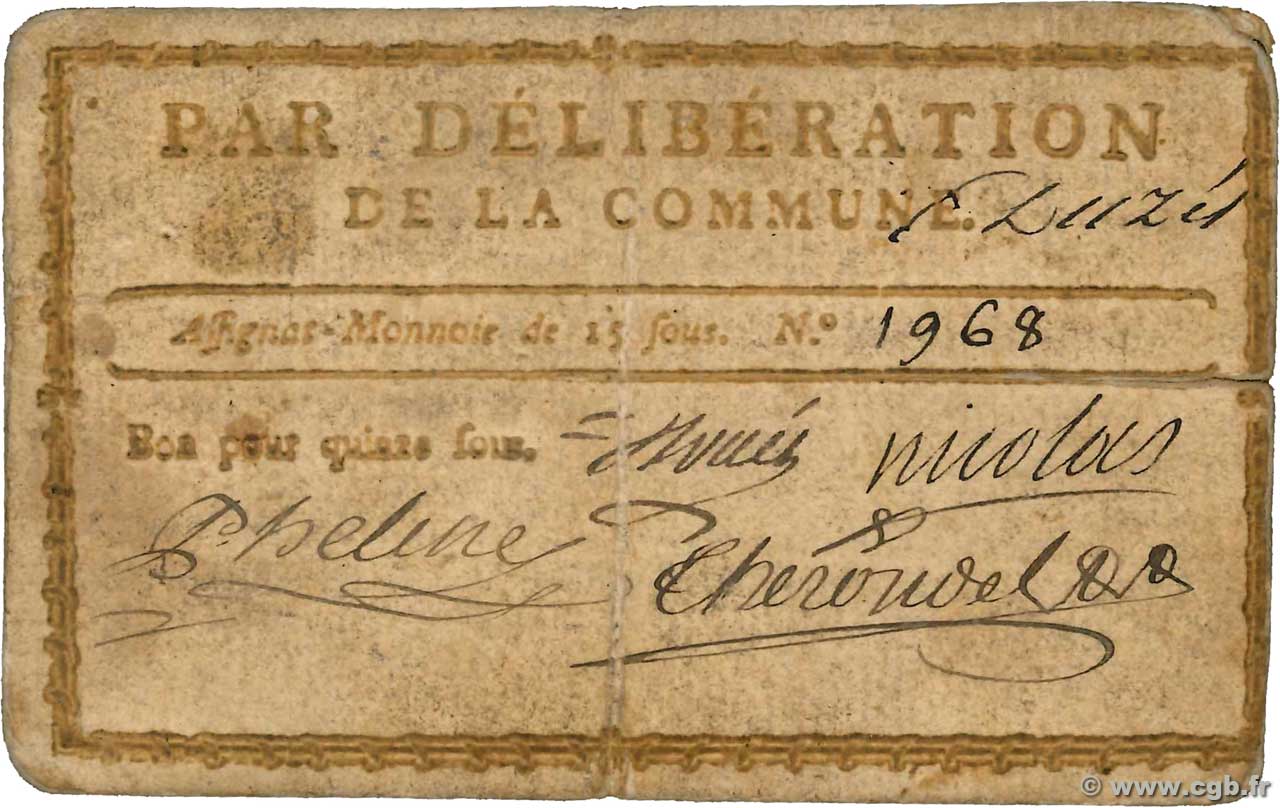 PAR DÉLIBÉRATION
DE LA COMMUNE. Duzès
Assignat-Monnoie de 15 sous. N.º 1968
Bon pour quinze sous. nicolas
Pheline
© www.cgb.fr